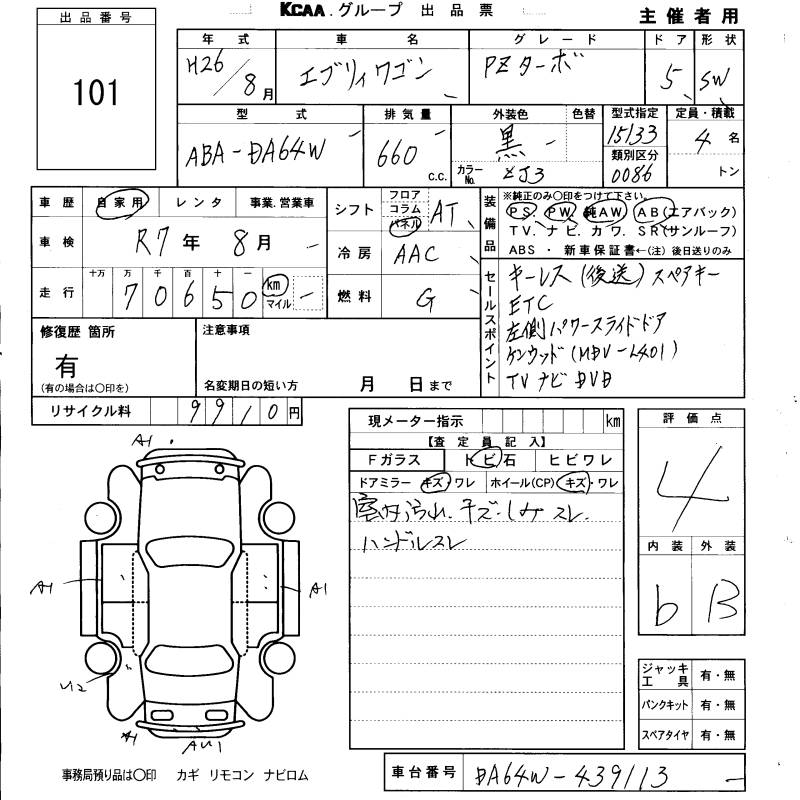 KCAA.グループ 出品票
主催者用
出品番号
101
年式 車名 グレード ドア 形状
H26/8月 エブリィワゴン PZターボ 5 SW
型式 排気量 外装色 色替 型式指定 定員・積載
ABA-DA64W 660 c.c. 黒 15133 4名
カラーNo. ZJ3 類別区分 0086 トン
車歴 自家用 レンタ 事業.営業車
車検 R7年 8月
走行 十万 万 千 百 十 一
70650 km マイル
シフト フロア コラム パネル AT
冷房 AAC
燃料 G
装備品 ※純正のみ○印をつけて下さい。
PS. PW 純AW AB(エアバック)
TV. ナビ. カワ. SR(サンルーフ)
ABS ・ 新車保証書←(注) 後日送りのみ
セールスポイント
キーレス (後送) スペアキー
ETC
左側パワースライドドア
ケンウッド (MDV-L401)
TV ナビ DVD
修復歴 箇所
有
(有の場合は○印を)
注意事項
名変期日の短い方 月 日まで
リサイクル料 9910円
現メーター指示 km
【査定員記入】
Fガラス トビ石 ヒビワレ
ドアミラー キズ・ワレ ホイール(CP) キズ・ワレ
室内汚れ. キズ・しみ スレ.
ハンドルスレ
評価点
4
内装 外装
b B
A1
A1
A1
U2
A1
AU1
ジャッキ工具 有・無
パンクキット 有・無
スペアタイヤ 有・無
事務局預り品は○印 カギ リモコン ナビロム
車台番号 DA64W-439113